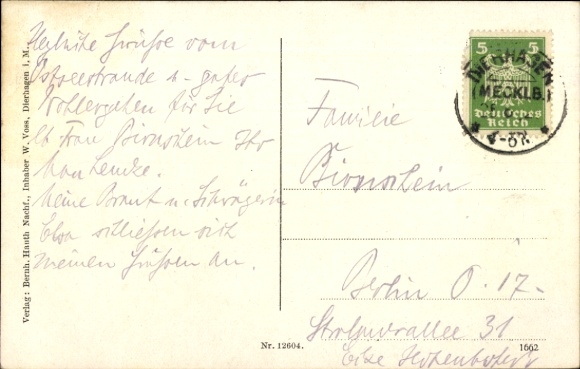 Herzliche Grüße vom
Ostseestrande u. gutes
Wohlergehen für Sie
lb Frau Bionstein Ihr
Meine Braut u. Schwägerin
Elsa schließen sich
meinen Grüßen an.
Familie
Bionstein
Berlin O. 17.
Stralauerallee 31
Ecke
Verlag: Bernh. Hauth Nachf., Inhaber W. Voss, Dierhagen i. M.
Nr. 12604.
1662
5 5
Deutsches
Reich
DIERHAGEN
(MECKLB.)
4-5N.